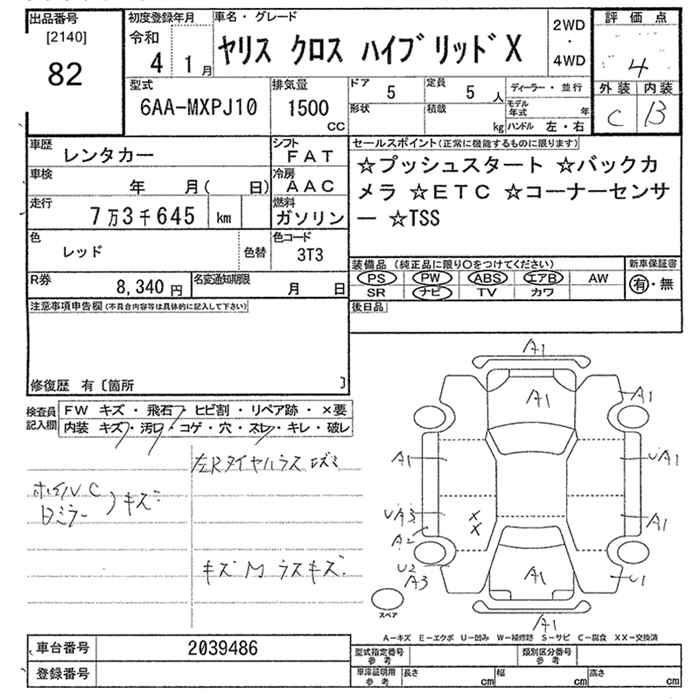 出品番号
[2140]
82
初度登録年月
令和
4年 1月
車名・グレード
ヤリス クロス ハイブリッドX
2WD
・
4WD
評価点
4
外装 内装
C B
型式
6AA-MXPJ10
排気量
1500
CC
ドア 5
定員 5 人
形状
積載 kg
ディーラー・並行
モデル年式 年
ハンドル 左・右
車歴
レンタカー
シフト
FAT
車検
年 月( 日)
冷房
AAC
走行
7万3千645 km
燃料
ガソリン
色
レッド
色替
色コード
3T3
R券
8,340 円
名変通知期限
月 日
セールスポイント(正常に機能するものに限ります)
☆プッシュスタート ☆バックカ
メラ ☆ETC ☆コーナーセンサ
ー ☆TSS
装備品(純正品に限り○をつけてください)
PS PW ABS エアB AW
SR ナビ TV カワ
新車保証書
有・無
後日品
注意事項申告欄(不具合内容等は具体的に記入して下さい)
修復歴 有〔箇所 〕
検査員
記入欄
FW キズ・飛石・ヒビ割・リペア跡・×要
内装 キズ・汚れ・コゲ・穴・スレ・キレ・破レ
左Rタイヤハウス キズ
ホイルC
Dミラー
)キズ
キズM ラスキズ
A1
A1
A1
A1
A1
UA1
UA3
A2
A1
U2
A3
A1
U1
A1
××
スペア
A-キズ E-エクボ U-凹み W-補修跡 S-サビ C-腐食 XX-交換済
車台番号
2039486
登録番号
型式指定番号
参考
類別区分番号
参考
車庫証明用
参考
長さ cm
幅 cm
高さ cm